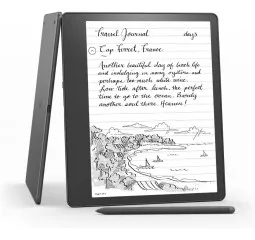 Travel Journal days
Cap Ferret, France
Another beautiful day of beach life
and indulging in some oysters and
perhaps too much white wine.
Low tide after lunch, the perfect
time to go to the ocean. Barely
another soul there. Heaven!